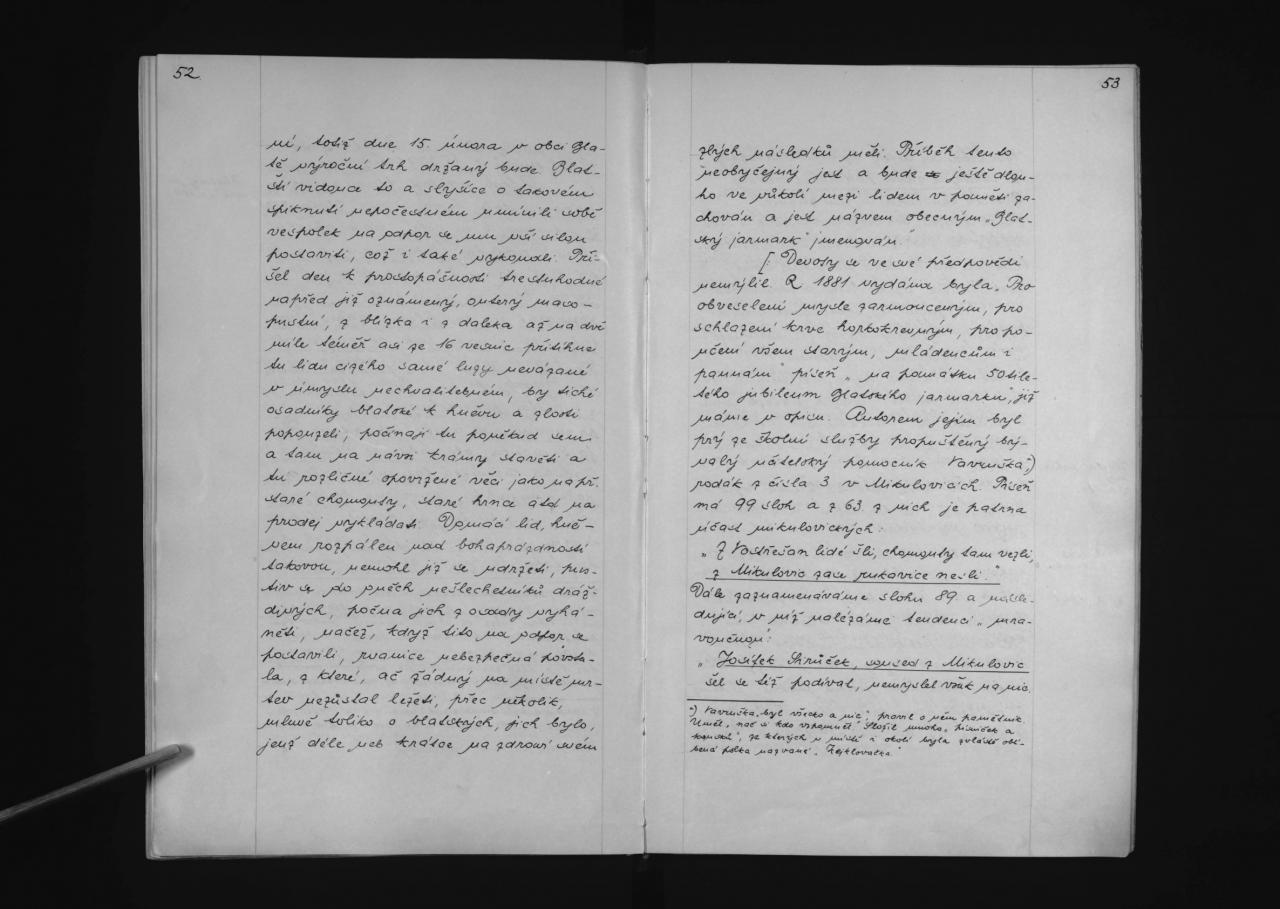 52
ní, totiž dne 15. února v obci Bla-
tě výroční trh držaný bude. Blat-
ští vidouce to a slyšíce o takovém
spiknutí nepočestném umínili sobě
vespolek na odpor se mu vší silou
postaviti, což i také vykonali. Při-
šel den k prostopášnosti trestuhodné
napřed již oznámený, outerý maso-
pustní, z blízka i z daleka až na dvě
míle téměř asi ze 16 vesnic přitáhne
tu lidu cizého samé luzy nevázané
v úmyslu nechvalitebném, by tiché
osadníky blatské k hněvu a zlosti
popouzeli, počínají tu poněkud sem
a tam na návsi krámy stavěti a
tu rozličné opovržené věci jako na př.
staré chomouty, staré hrnce atd na
prodej vykládati. Domácí lid, hně-
vem rozpálen nad bohaprázdností
takovou, nemohl již se udržeti, pus-
tiv se do oněch nešlechetníků dráž-
divých, počna jich z osady vyhá-
něti, načež, když tito na odpor se
postavili, rvanice nebezpečná povsta-
la, z které, ač žádný na místě mr-
tev nezůstal ležeti, přec několik,
mluvě toliko o blatských, jich bylo,
jenž déle neb krátce na zdraví svém
53
zlých následků měli. Příběh tento
neobyčejný jest a bude ještě dlou-
ho ve vůkolí mezi lidem v paměti za-
chován a jest názvem obecným „Blat-
ský jarmark" jmenován."
[: Devoty se ve své předpovědi
nemýlil. R. 1881 vydána byla „Pro
obveselení mysle zarmouceným, pro
schlazení krve horkokrevným, pro po-
učení všem starým, mládencům i
pannám" píseň „na památku 50tile-
tého jubileum Blatského jarmarku", již
máme v opisu. Autorem jejím byl
prý ze školní služby propuštěný bý-
valý učitelský pomocník Vavruška,*)
rodák z čísla 3 v Mikulovicích. Píseň
má 99 sloh a z 63. z nich je patrna
účast mikulovických:
„Z Vostřešan lidé šli, chomouty tam vezli,
z Mikulovic zase rukavice nesli."
Dále zaznamenáváme slohu 89. a násle-
dující, v níž nalézáme tendenci „mra-
voučnou":
„Josífek Skrůček, soused z Mikulovic
šel se též podívat, nemyslel však na nic.
*) Vavruška „byl všecko a nic", pravil o něm pamětník.
Uměl, nač si kdo vzpomněl." Složil mnoho „písniček a
kousků", ze kterých v místě i okolí byla zvláště obl-
íbená polka nazvaná